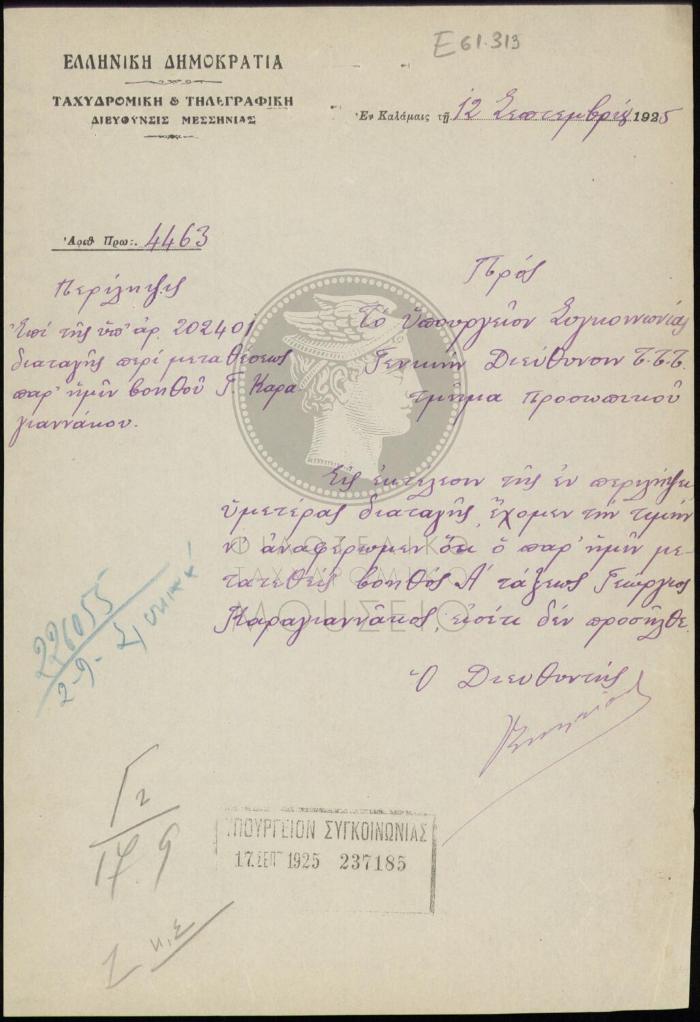 Ε61.313
ΕΛΛΗΝΙΚΗ ΔΗΜΟΚΡΑΤΙΑ
ΤΑΧΥΔΡΟΜΙΚΗ & ΤΗΛΕΓΡΑΦΙΚΗ
ΔΙΕΥΘΥΝΣΙΣ ΜΕΣΣΗΝΙΑΣ
Ἐν Καλάμαις τῇ 12 Σεπτεμβρίου 1925
Ἀριθ. Πρω:. 4463
Περίληψις
Ἐπί τῆς ὑπ' ἀρ. 202401
διαταγῆς περί μεταθέσεως
παρ' ἡμῖν βοηθοῦ Γ. Καρα
γιαννάκου.
Πρός
Τό Ὑπουργεῖον Συγκοινωνίας
Γενικήν Διεύθυνσιν Τ.Τ.Τ.
τμῆμα Προσωπικοῦ
Εἰς ἐκτέλεσιν τῆς ἐν περιλήψει
ὑμετέρας διαταγῆς, ἔχομεν τήν τιμήν
ν' ἀναφέρωμεν ὅτι ὁ παρ' ἡμῖν με-
τατεθείς βοηθός Α' τάξεως Γεώργιος
Καραγιαννάκος, εἰσέτι δέν προσῆλθε.
Ὁ Διευθυντής
ΦΙΛΟΤΕΛΙΚΟ
ΤΑΧΥΔΡΟΜΙΚΟ
ΜΟΥΣΕΙΟ
226055
2-9-
Γ2
17.9
ΥΠΟΥΡΓΕΙΟΝ ΣΥΓΚΟΙΝΩΝΙΑΣ
17.ΣΕΠΤ 1925 237185